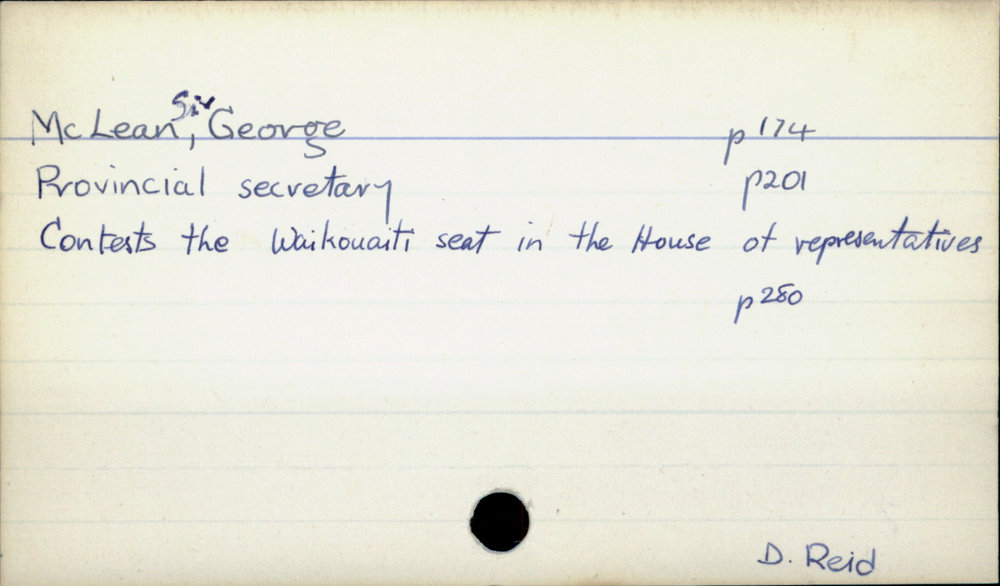 McLean, Sir George p174
Provincial secretary p201
Contests the Waikouaiti seat in the House of representatives
p280
D. Reid